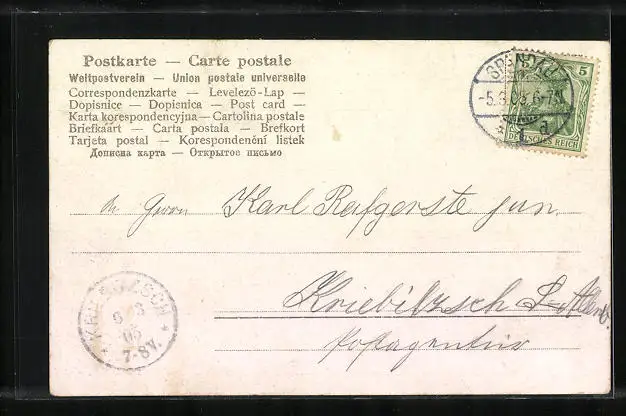 Postkarte — Carte postale
Weltpostverein — Union postale universelle
Correspondenzkarte — Levelező-Lap —
Dopisnice — Dopisnica — Post card —
Karta korespondencyjna — Cartolina postale
Briefkaart — Carta postala — Brefkort
Tarjeta postal — Korespondenční listek
Дописна карта — Открытое письмо
SPANDAU
5
-5.3.05.6-7N.
1 d
DEUTSCHES REICH
Herrn Karl Rafgerste jun.
KRIEBITZSCH
6 3
05
7-8V.
Kriebitzsch S.-Altenb.
Postagentur